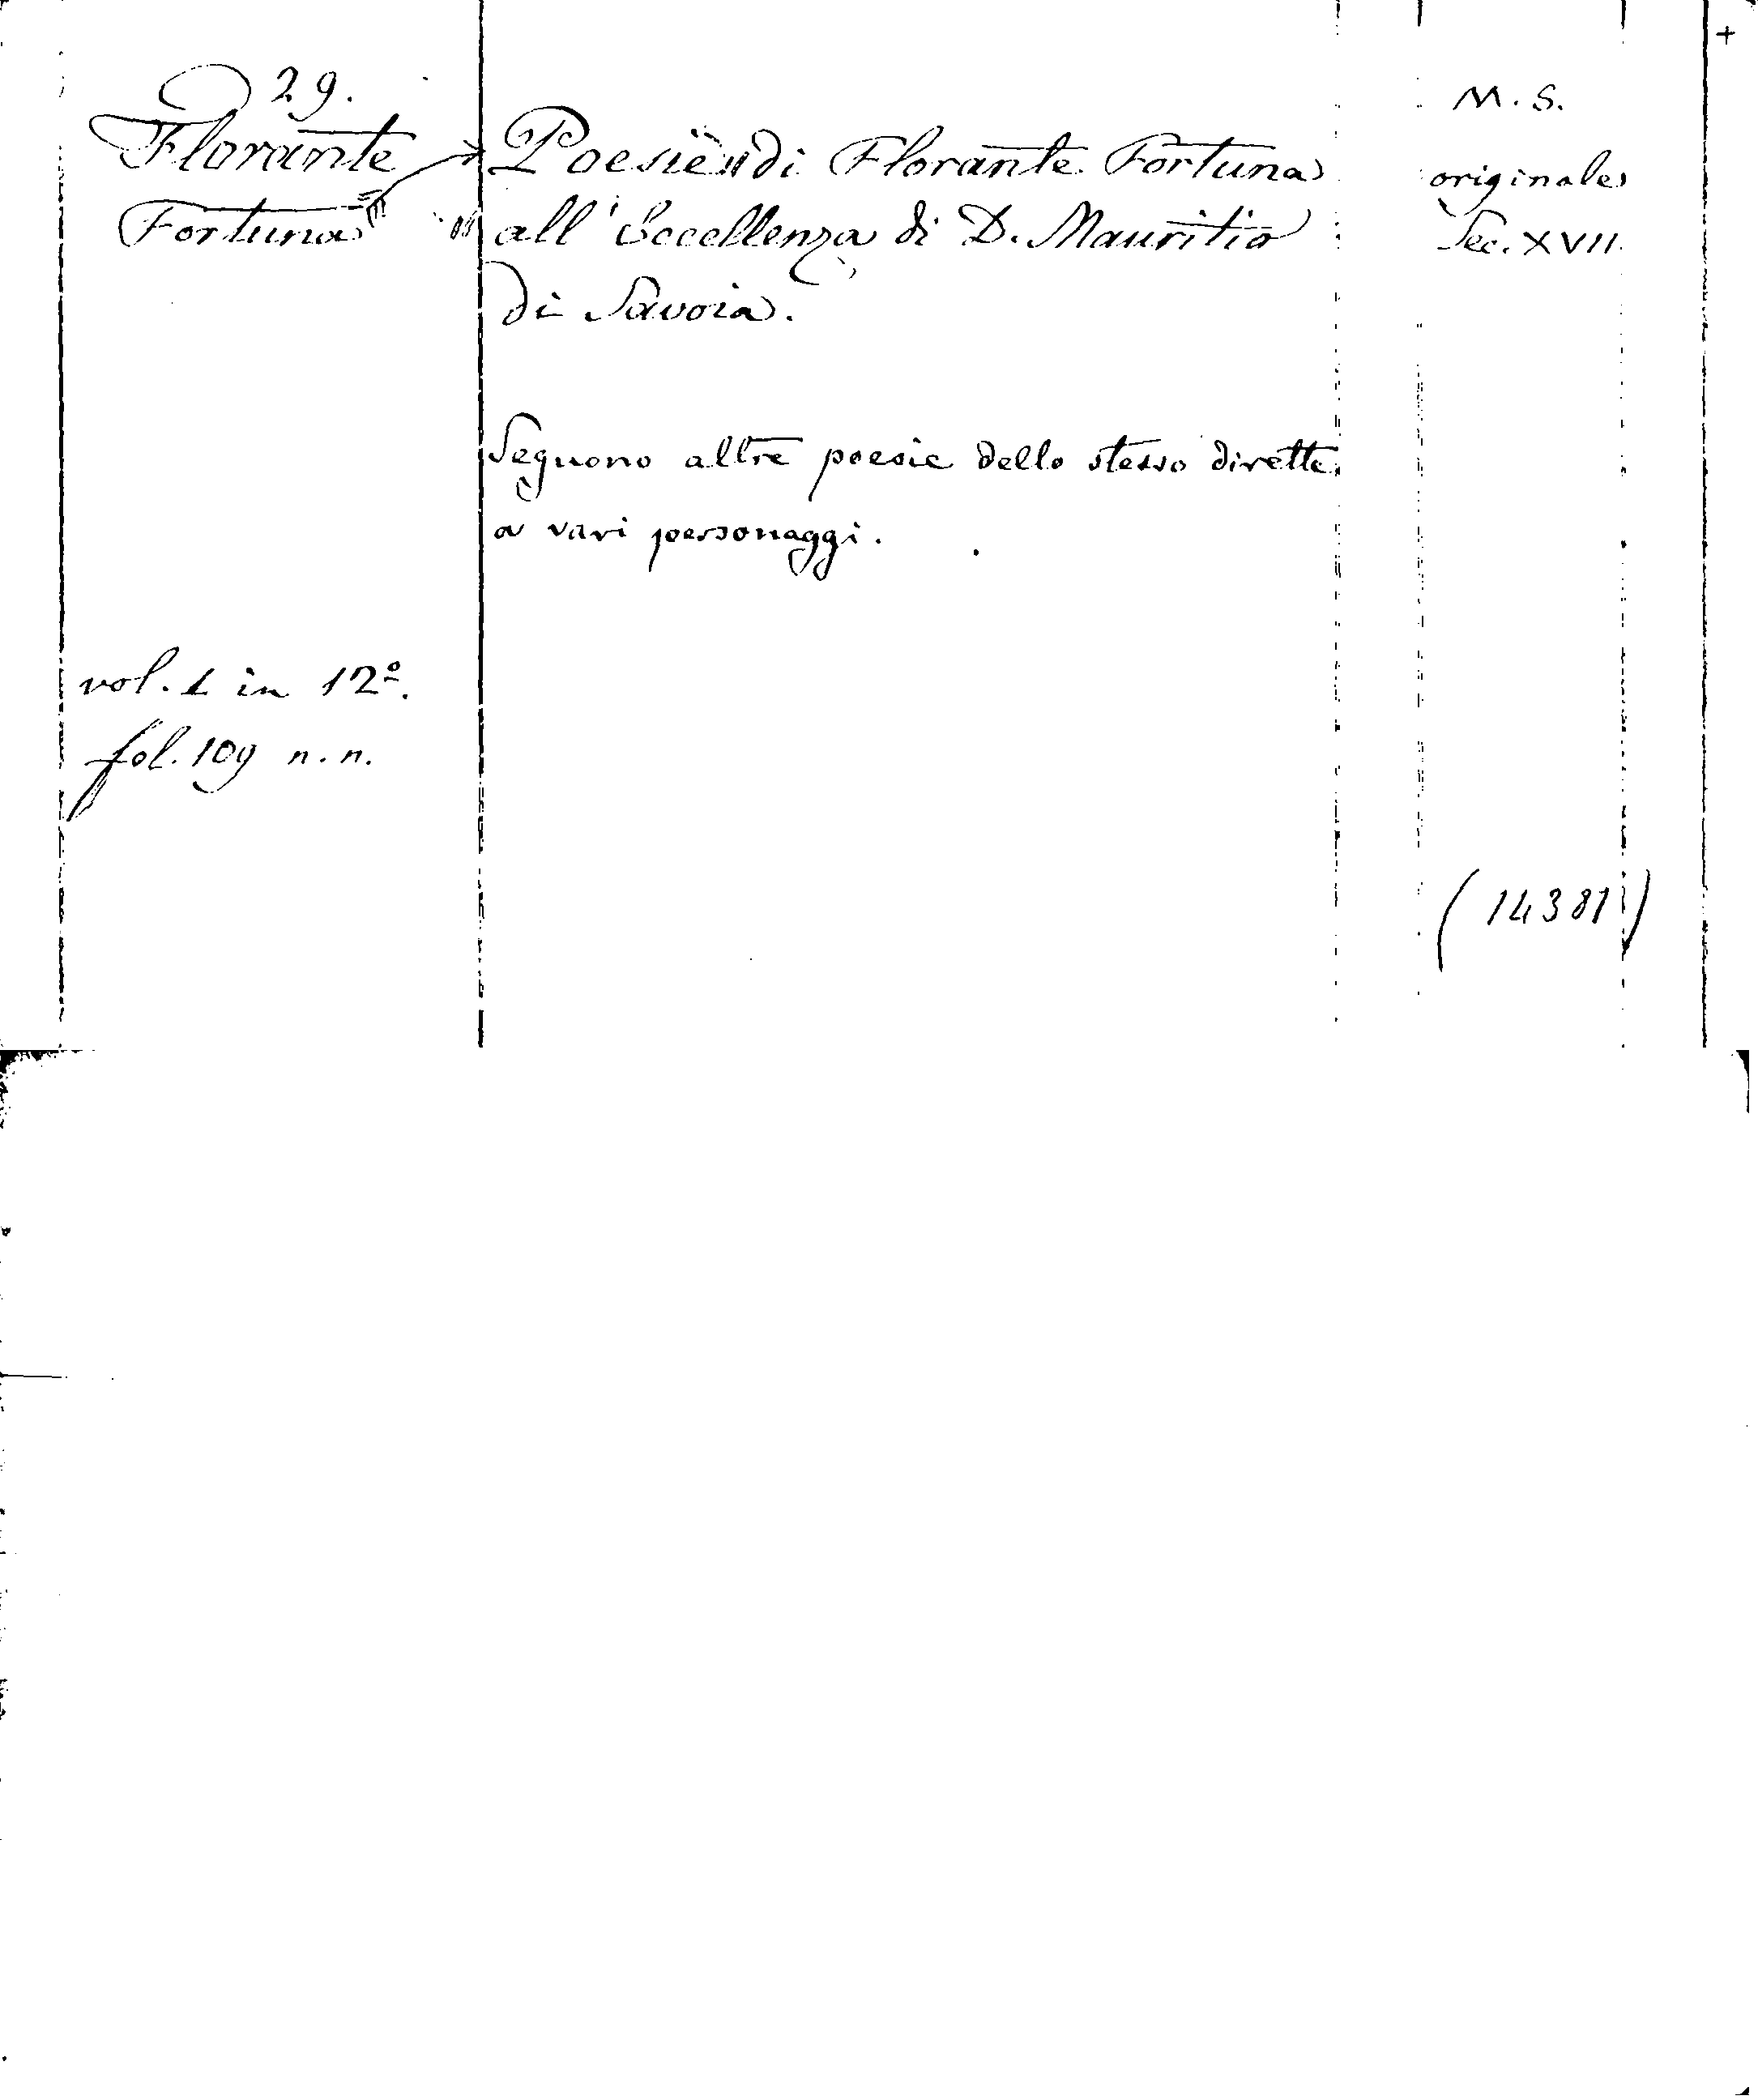 29.
Florante
Fortuna
Poesie di Florante Fortuna
all' Eccellenza di D. Mauritio
di Savoia.
Seguono altre poesie dello stesso dirette
a vari personaggi.
vol. 1 in 12º.
fol. 109 n. n.
M. S.
originale
Sec. XVII.
(14381)